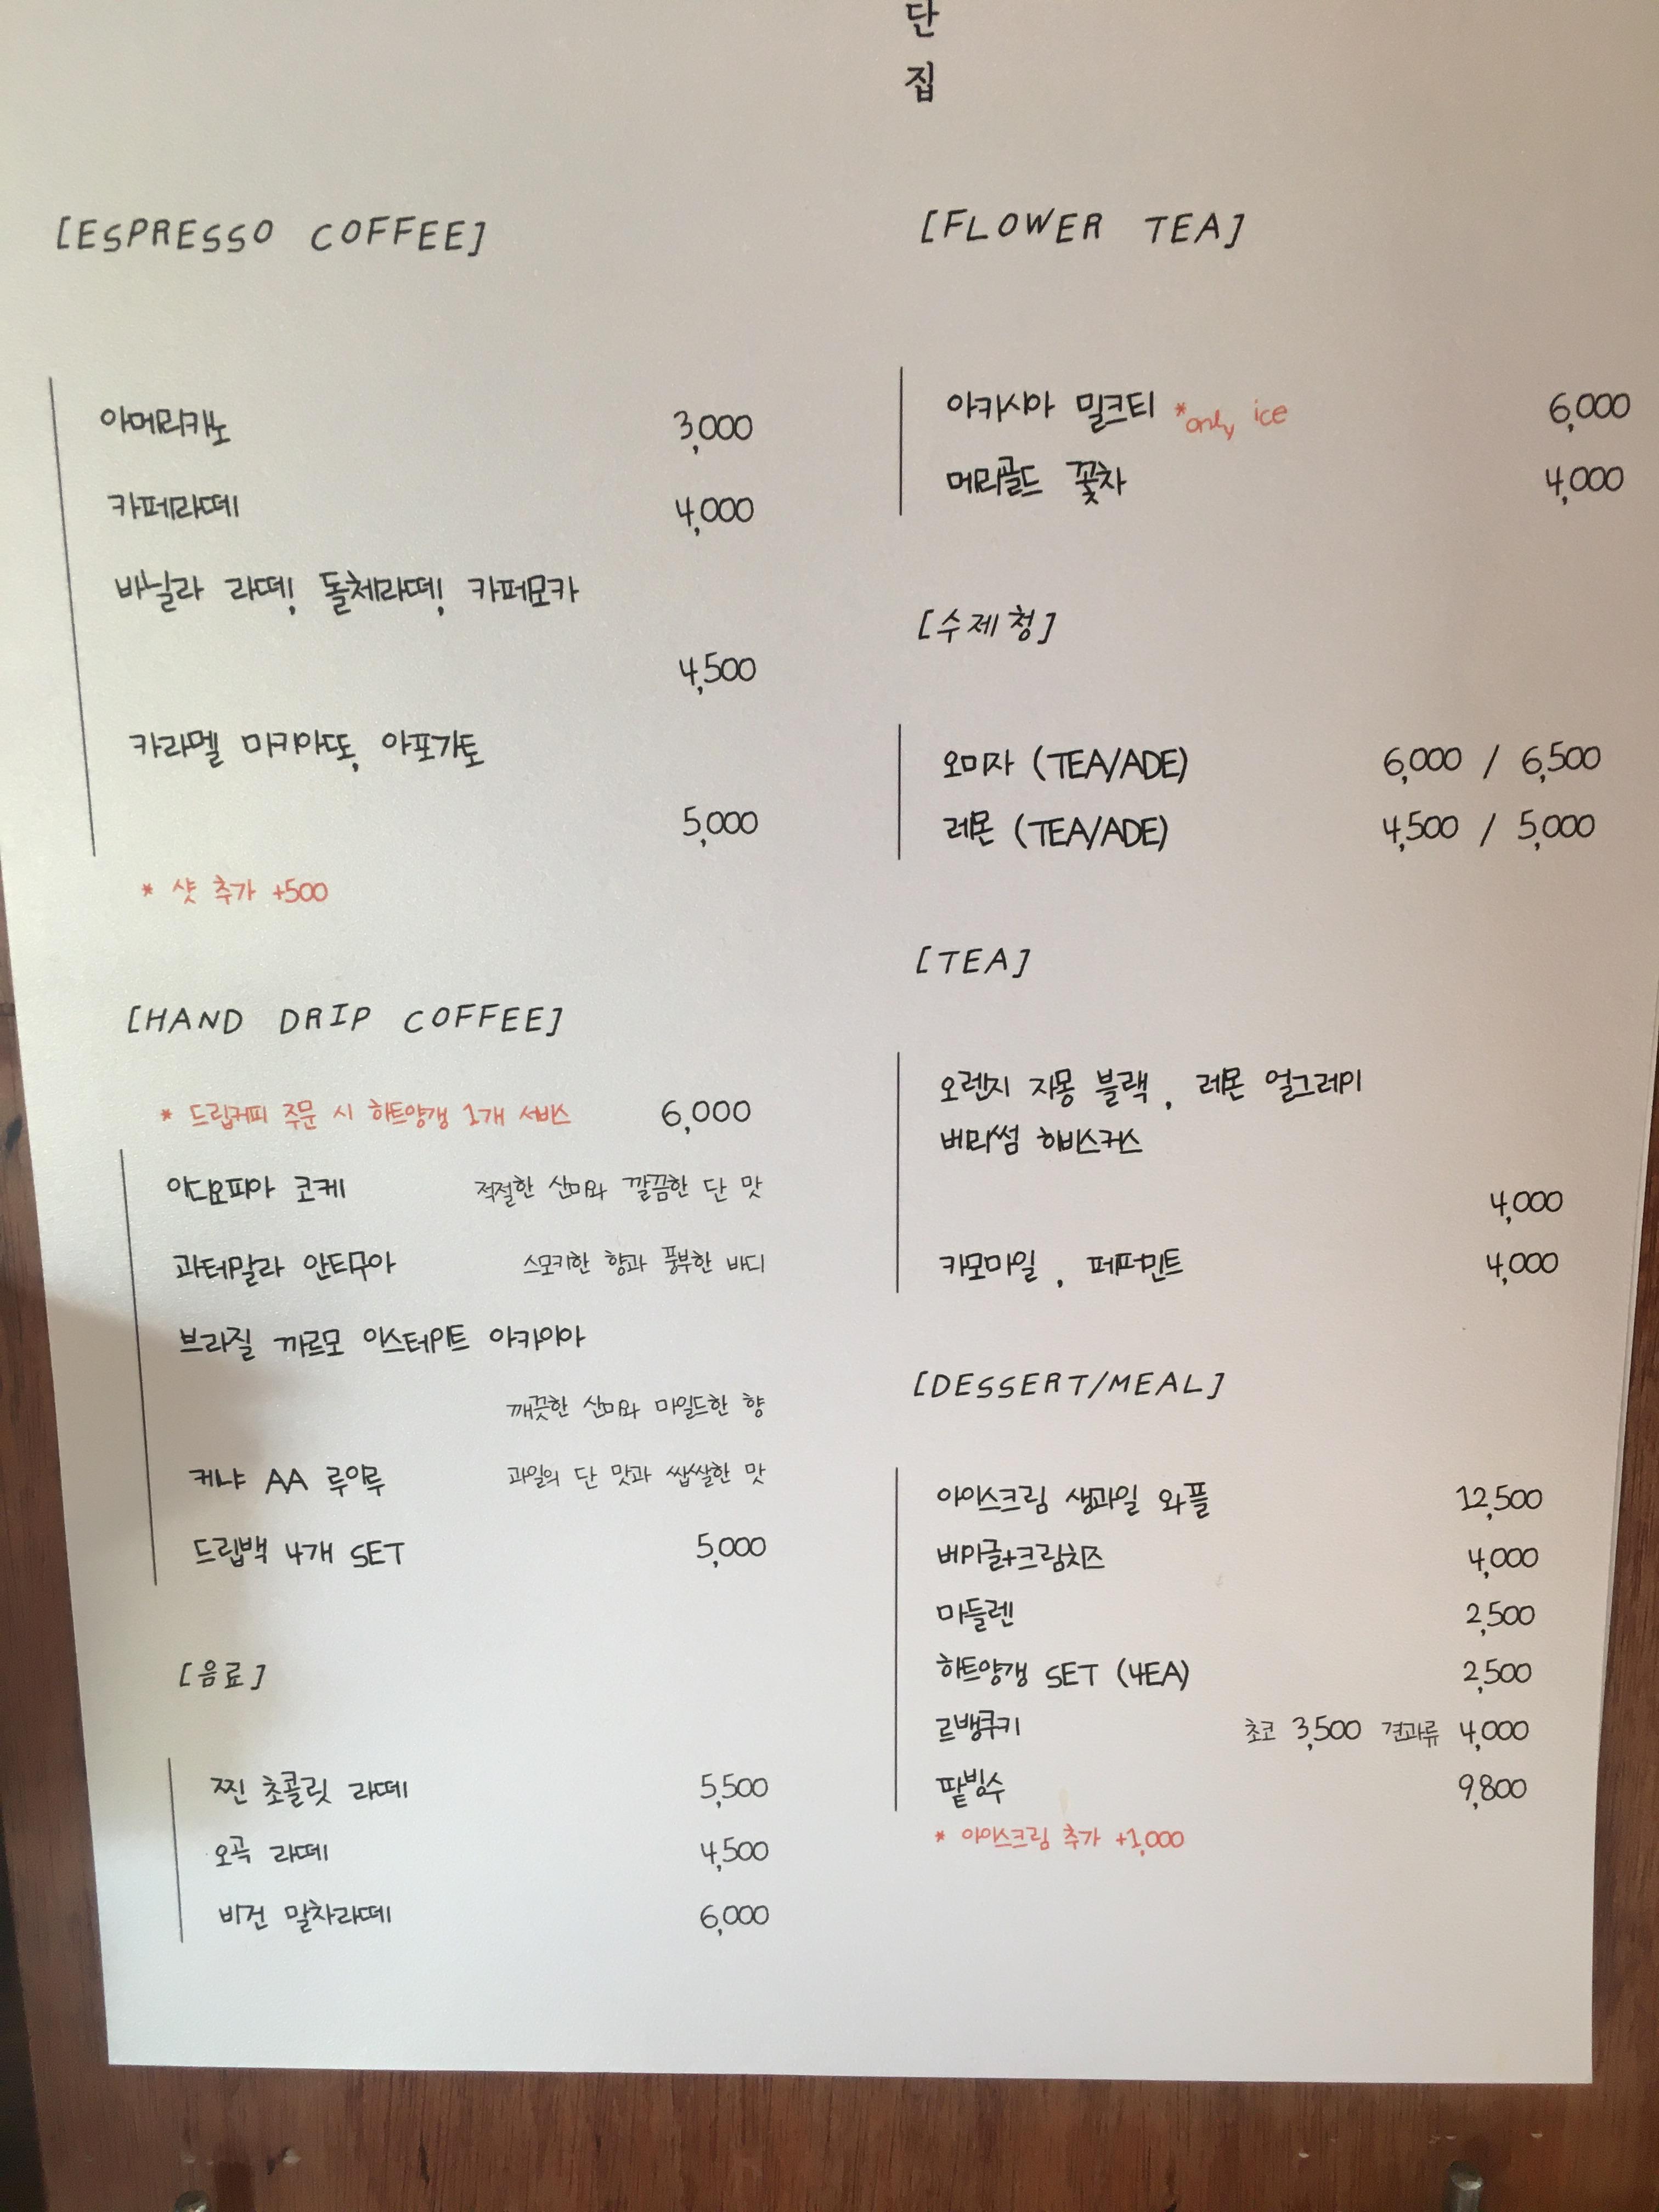 단
집
[ESPRESSO COFFEE]
아메리카노 3,000
카페라떼 4,000
바닐라 라떼, 돌체라떼, 카페모카
4,500
카라멜 마키아또, 아포가토
5,000
* 샷 추가 +500
[HAND DRIP COFFEE]
* 드립커피 주문 시 하트양갱 1개 서비스 6,000
이디오피아 코케 적절한 산미와 깔끔한 단 맛
과테말라 안티구아 스모키한 향과 풍부한 바디
브라질 까르모 이스테이트 아카이아
깨끗한 산미와 마일드한 향
케냐 AA 루이루 과일의 단 맛과 쌉쌀한 맛
드립백 4개 SET 5,000
[음료]
찐 초콜릿 라떼 5,500
오곡 라떼 4,500
비건 말차라떼 6,000
[FLOWER TEA]
아카시아 밀크티 *only ice 6,000
메리골드 꽃차 4,000
[수제청]
오미자 (TEA/ADE) 6,000 / 6,500
레몬 (TEA/ADE) 4,500 / 5,000
[TEA]
오렌지 자몽 블랙, 레몬 얼그레이
베리썸 히비스커스
4,000
카모마일, 페퍼민트 4,000
[DESSERT/MEAL]
아이스크림 생과일 와플 12,500
베이글+크림치즈 4,000
마들렌 2,500
하트양갱 SET (4EA) 2,500
르뱅쿠키 초코 3,500 견과류 4,000
팥빙수 9,800
* 아이스크림 추가 +1,000